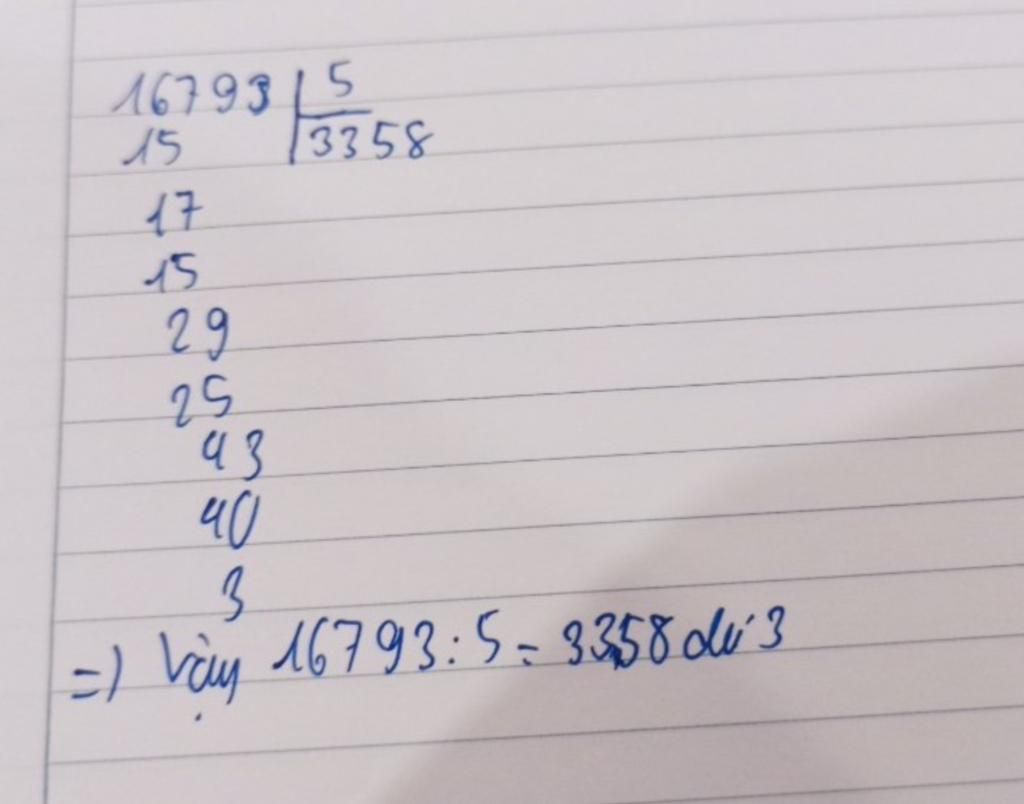 16793 5
15 3358
17
15
29
25
43
40
3
=) Vậy 16793 : 5 = 3358 dư 3